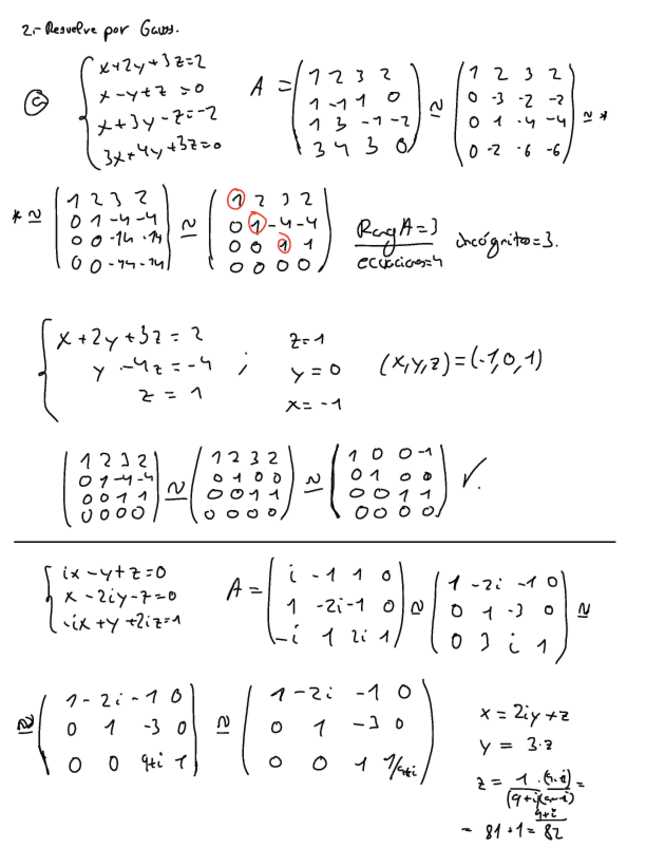 2.- Resuelve por Gauss.
a) { x+2y+3z=2
x-y+z=0
x+3y-z=-2
3x+4y+3z=0
A = ( 1 2 3 2
1 -1 1 0
1 3 -1 -2
3 4 3 0 ) ≅ ( 1 2 3 2
0 -3 -2 -2
0 1 -4 -4
0 -2 -6 -6 ) ≅ *
* ≅ ( 1 2 3 2
0 1 -4 -4
0 0 -14 -14
0 0 -14 -14 ) ≅ ( 1 2 3 2
0 1 -4 -4
0 0 1 1
0 0 0 0 )
Rang A=3
ecuaciones=4
incógnitas=3.
{ x+2y+3z = 2
y -4z = -4
z = 1
;
z=1
y=0
x=-1
(x,y,z)=(-1,0,1)
( 1 2 3 2
0 1 -4 -4
0 0 1 1
0 0 0 0 ) ≅ ( 1 2 3 2
0 1 0 0
0 0 1 1
0 0 0 0 ) ≅ ( 1 0 0 -1
0 1 0 0
0 0 1 1
0 0 0 0 ) ✓.
{ ix-y+z=0
x-2iy-z=0
-ix+y+2iz=1
A = ( i -1 1 0
1 -2i -1 0
-i 1 2i 1 ) ≅ ( 1 -2i -1 0
0 1 -3 0
0 3 i 1 ) ≅
≅ ( 1 -2i -1 0
0 1 -3 0
0 0 9+i 1 ) ≅ ( 1 -2i -1 0
0 1 -3 0
0 0 1 1/9+i )
x = 2iy+z
y = 3·z
z = 1·(9-i) / (9+i)(9-i) =
9+i
= 81+1 = 82